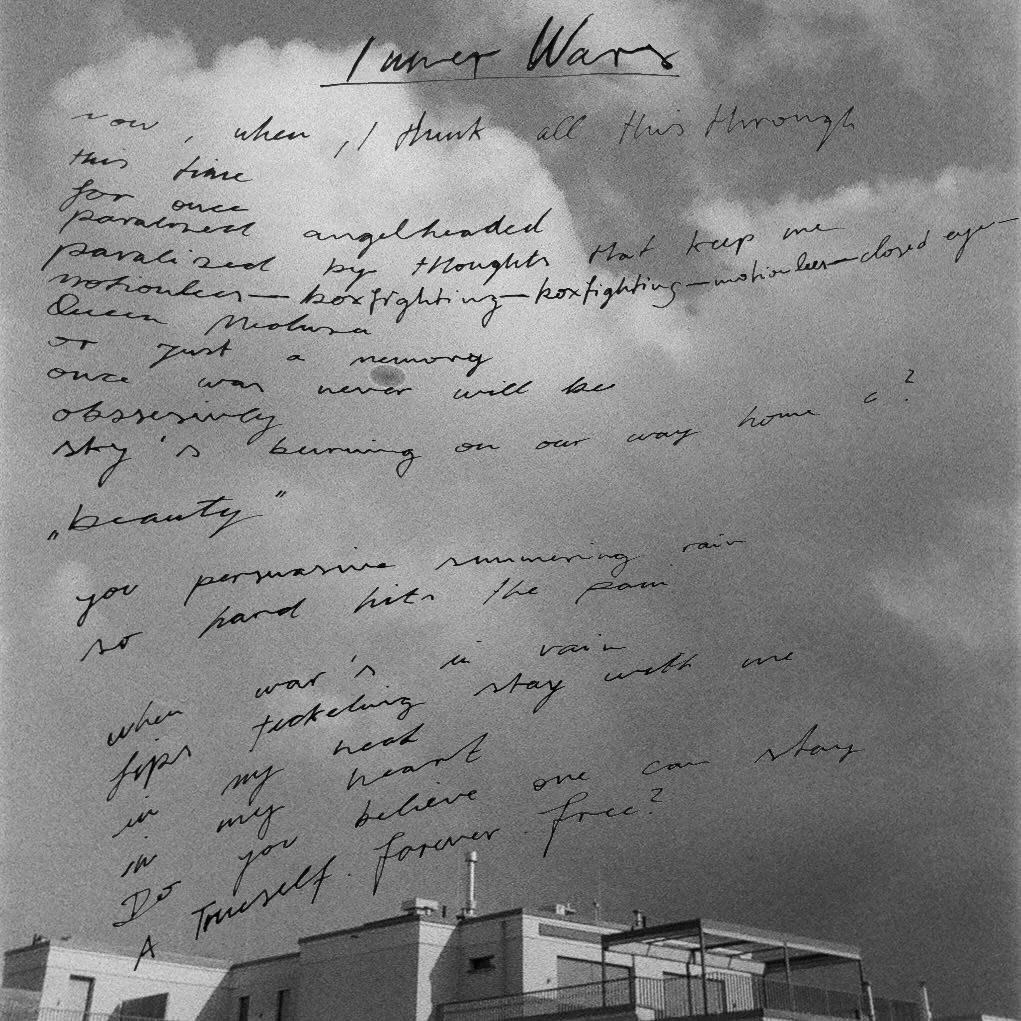 Inner Wars
now, when, I think all this through
this time
for once
paralised angelheaded
paralised by thoughts that keep me
motionless — boxfighting — boxfighting — motionless — closed eye —
Queen Medusa
or just a memory
once was never will be
obssesivly
sky's burning on our way home c?
„beauty"
you persuasive summering rain
so hard hits the pain
when war's in vain
lips tickeling stay with me
in my head
in my heart
Do you believe one can stay
A Trueself. forever. free?